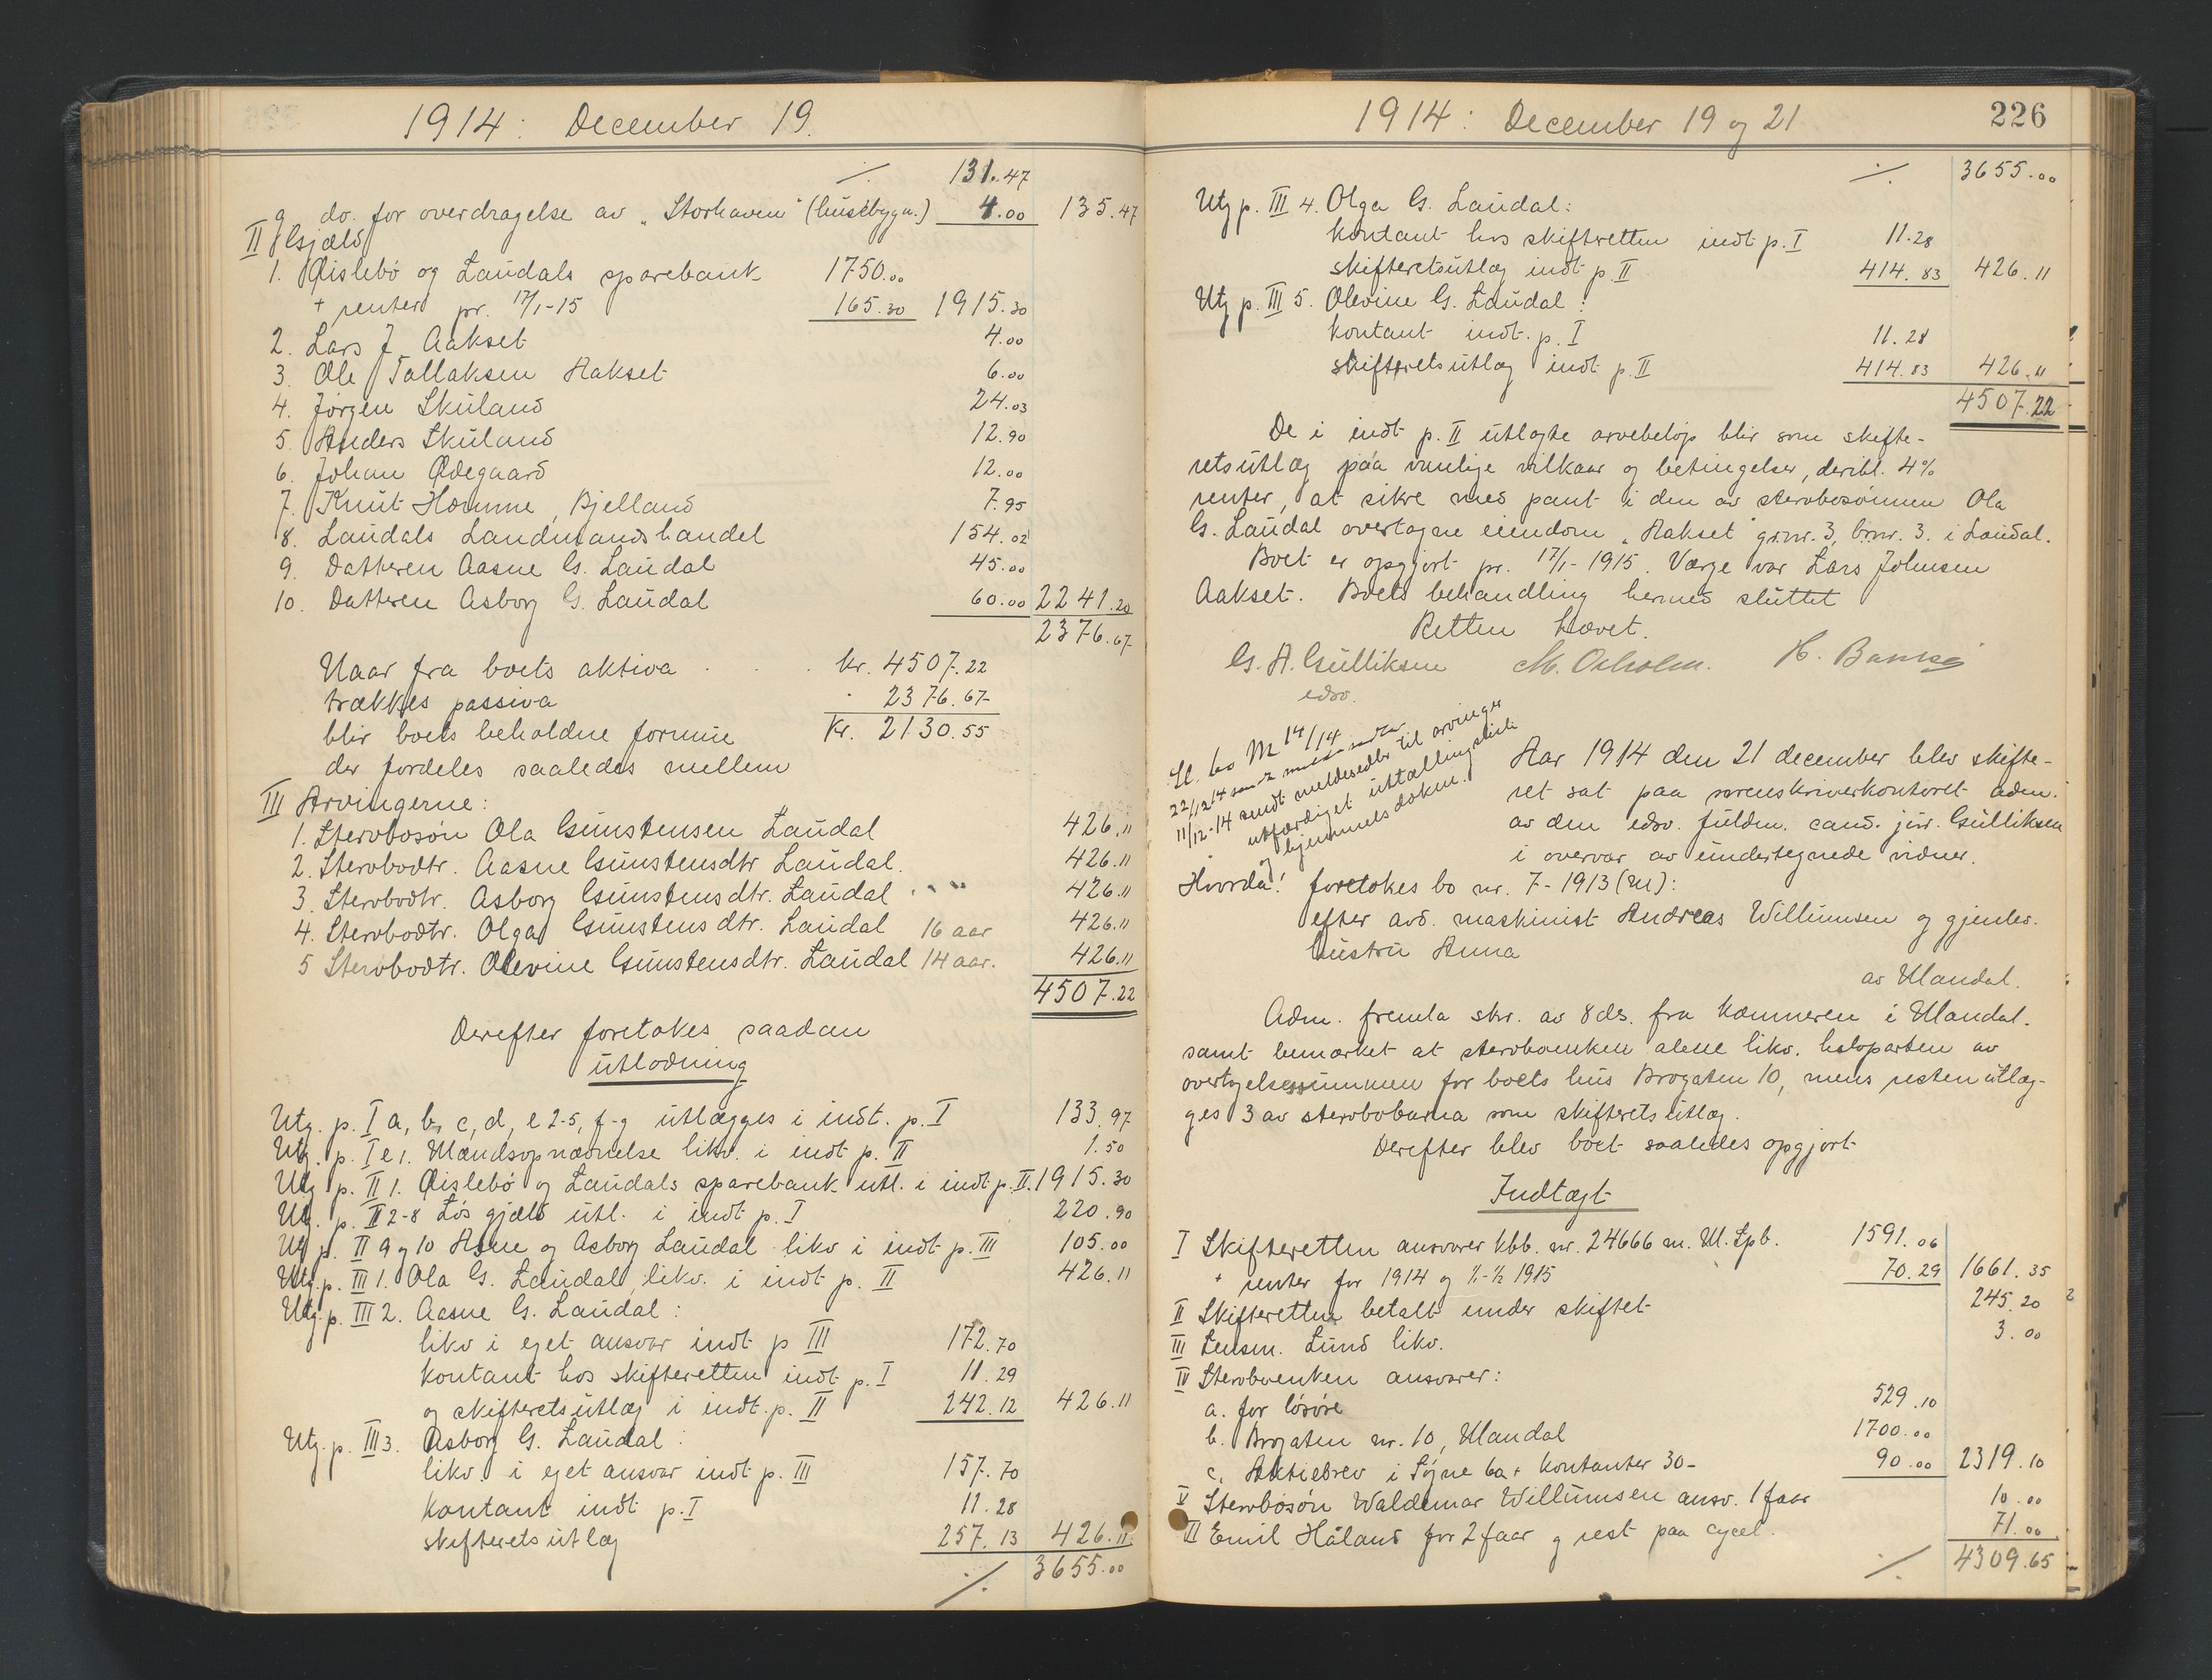 1914: December 19.
./. 131.47
g do. for overdragelse av „Storhaven" (husebygn.) 4.00 135.47
II Gjæld
1. Øislebö og Laudals sparebank 1750.00
+ renter pr. 17/1-15 165.30 1915.30
2. Lars J. Aakset 4.00
3. Ole Tallaksen Aakset 6.00
4. Jörgen Skuland 24.03
5. Anders Skuland 12.90
6. Johan Ødegaard 12.00
7. Knut Homme, Bjelland 7.95
8. Laudals Landmandshandel 154.02
9. Datteren Aasne G. Laudal 45.00
10. Datteren Asborg G. Laudal 60.00 2241.20
2376.67
Naar fra boets aktiva . . . kr. 4507.22
trækkes passiva . 2376.67
blir boets beholdne formue Kr. 2130.55
der fordeles saaledes mellem
III Arvingerne:
1. Stervbosön Ola Gunstensen Laudal 426.11
2. Stervbodtr. Aasne Gunstensdtr Laudal. 426.11
3. Stervbodtr. Asborg Gunstensdtr. Laudal 426.11
4. Stervbodtr. Olga Gunstensdtr. Laudal 16 aar 426.11
5 Stervbodtr. Olevine Gunstensdtr. Laudal 14 aar. 426.11
4507.22
Derefter foretokes saadan
utlodning
Utg. p. I a, b, c, d, e 2-5, f-g utlægges i indt. p. I 133.97
Utg. p. I e 1. Mændsopnævnelse likv. i indt p. II 1.50
Utg p. II 1. Øislebö og Laudals sparebank utl. i indt p. II. 1915.30
Utg. p. II 2-8 Lös gjæld utl. i indt p. I 220.90
Utg p. II 9 og 10 Asne og Asborg Laudal likv i indt p. III 105.00
Utg. p. III 1. Ola G. Laudal likv. i indt p. II 426.11
Utg. p. III 2. Aasne G. Laudal:
likv i eget ansvar indt p III 172.70
kontant hos skifteretten indt p. I 11.29
og skifteretsutlæg i indt. p. II 242.12 426.11
Utg. p. III 3. Asborg G. Laudal:
likv i eget ansvar indt p. III 157.70
kontant indt p. I 11.28
skifteretsutlæg 257.13 426.11
./. 3655.00
1914: December 19 og 21
226
./. 3655.00
Utg p. III 4. Olga G. Laudal:
kontant hos skifteretten indt p. I 11.28
skifteretsutlæg indt p II 414.83 426.11
Utg p. III 5. Olevine G. Laudal:
kontant indt. p. I 11.28
skifteretsutlæg indt p. II 414.83 426.11
4507.22
De i indt p. II utlagte arvebelöp blir som skifte-
retsutlæg paa vanlige vilkaar og betingelser, deribl. 4%
renter, at sikre med pant i den av stervbosönnen Ola
G. Laudal overtagne eiendom „Aakset" gr.nr. 3, br.nr. 3. i Laudal.
Boet er opgjort pr. 17/1-1915. Værge var Lars Johnsen
Aakset. Boets behandling hermed sluttet
Retten hævet.
G. A. Gulliksen M. Oxholm. H. Bansø
edsv.
Sl. bo M 14/14
11/12-14 sendt meldesedler til arvinger
utfærdiget uttællingsliste
og hjemmelsdokum.
Aar 1914 den 21 december blev skifte-
ret sat paa sorenskriverkontoret adm.
av den edsv. fuldm. cand. jur. Gulliksen
i overvær av undertegnede vidner.
Hvorda: foretokes bo nr. 7-1913 (M):
efter avd. maskinist Andreas Willumsen og gjenlev.
hustru Anna
av Mandal.
Adm. fremla skr. av 8 ds. fra kæmneren i Mandal.
samt bemærket at stervboenken alene likv. halvparten av
overtagelsessummen for boets hus Brogaten 10, mens resten utlæg-
ges 3 av stervbobarna som skifteretsutlæg.
Derefter blev boet saaledes opgjort
Indtægt
I Skifteretten ansvarer kbb. nr. 24666 m. M. Spb. 1591.06
+ renter for 1914 og 1/1-1/2 1915 70.29 1661.35
II Skifteretten betalt under skiftet 245.20
III Lensm. Lund likv. 3.00
IV Stervboenken ansvarer:
a. for lösöre 529.10
b. Brogaten nr. 10, Mandal 1700.00
c. Aktiebrev i Søgne 60 + kontanter 30- 90.00 2319.10
V Stervbosön Waldemar Willumsen ansv. 1 faar 10.00
VI Emil Håland for 2 faar og rest paa cycel. 71.00
./. 4309.65